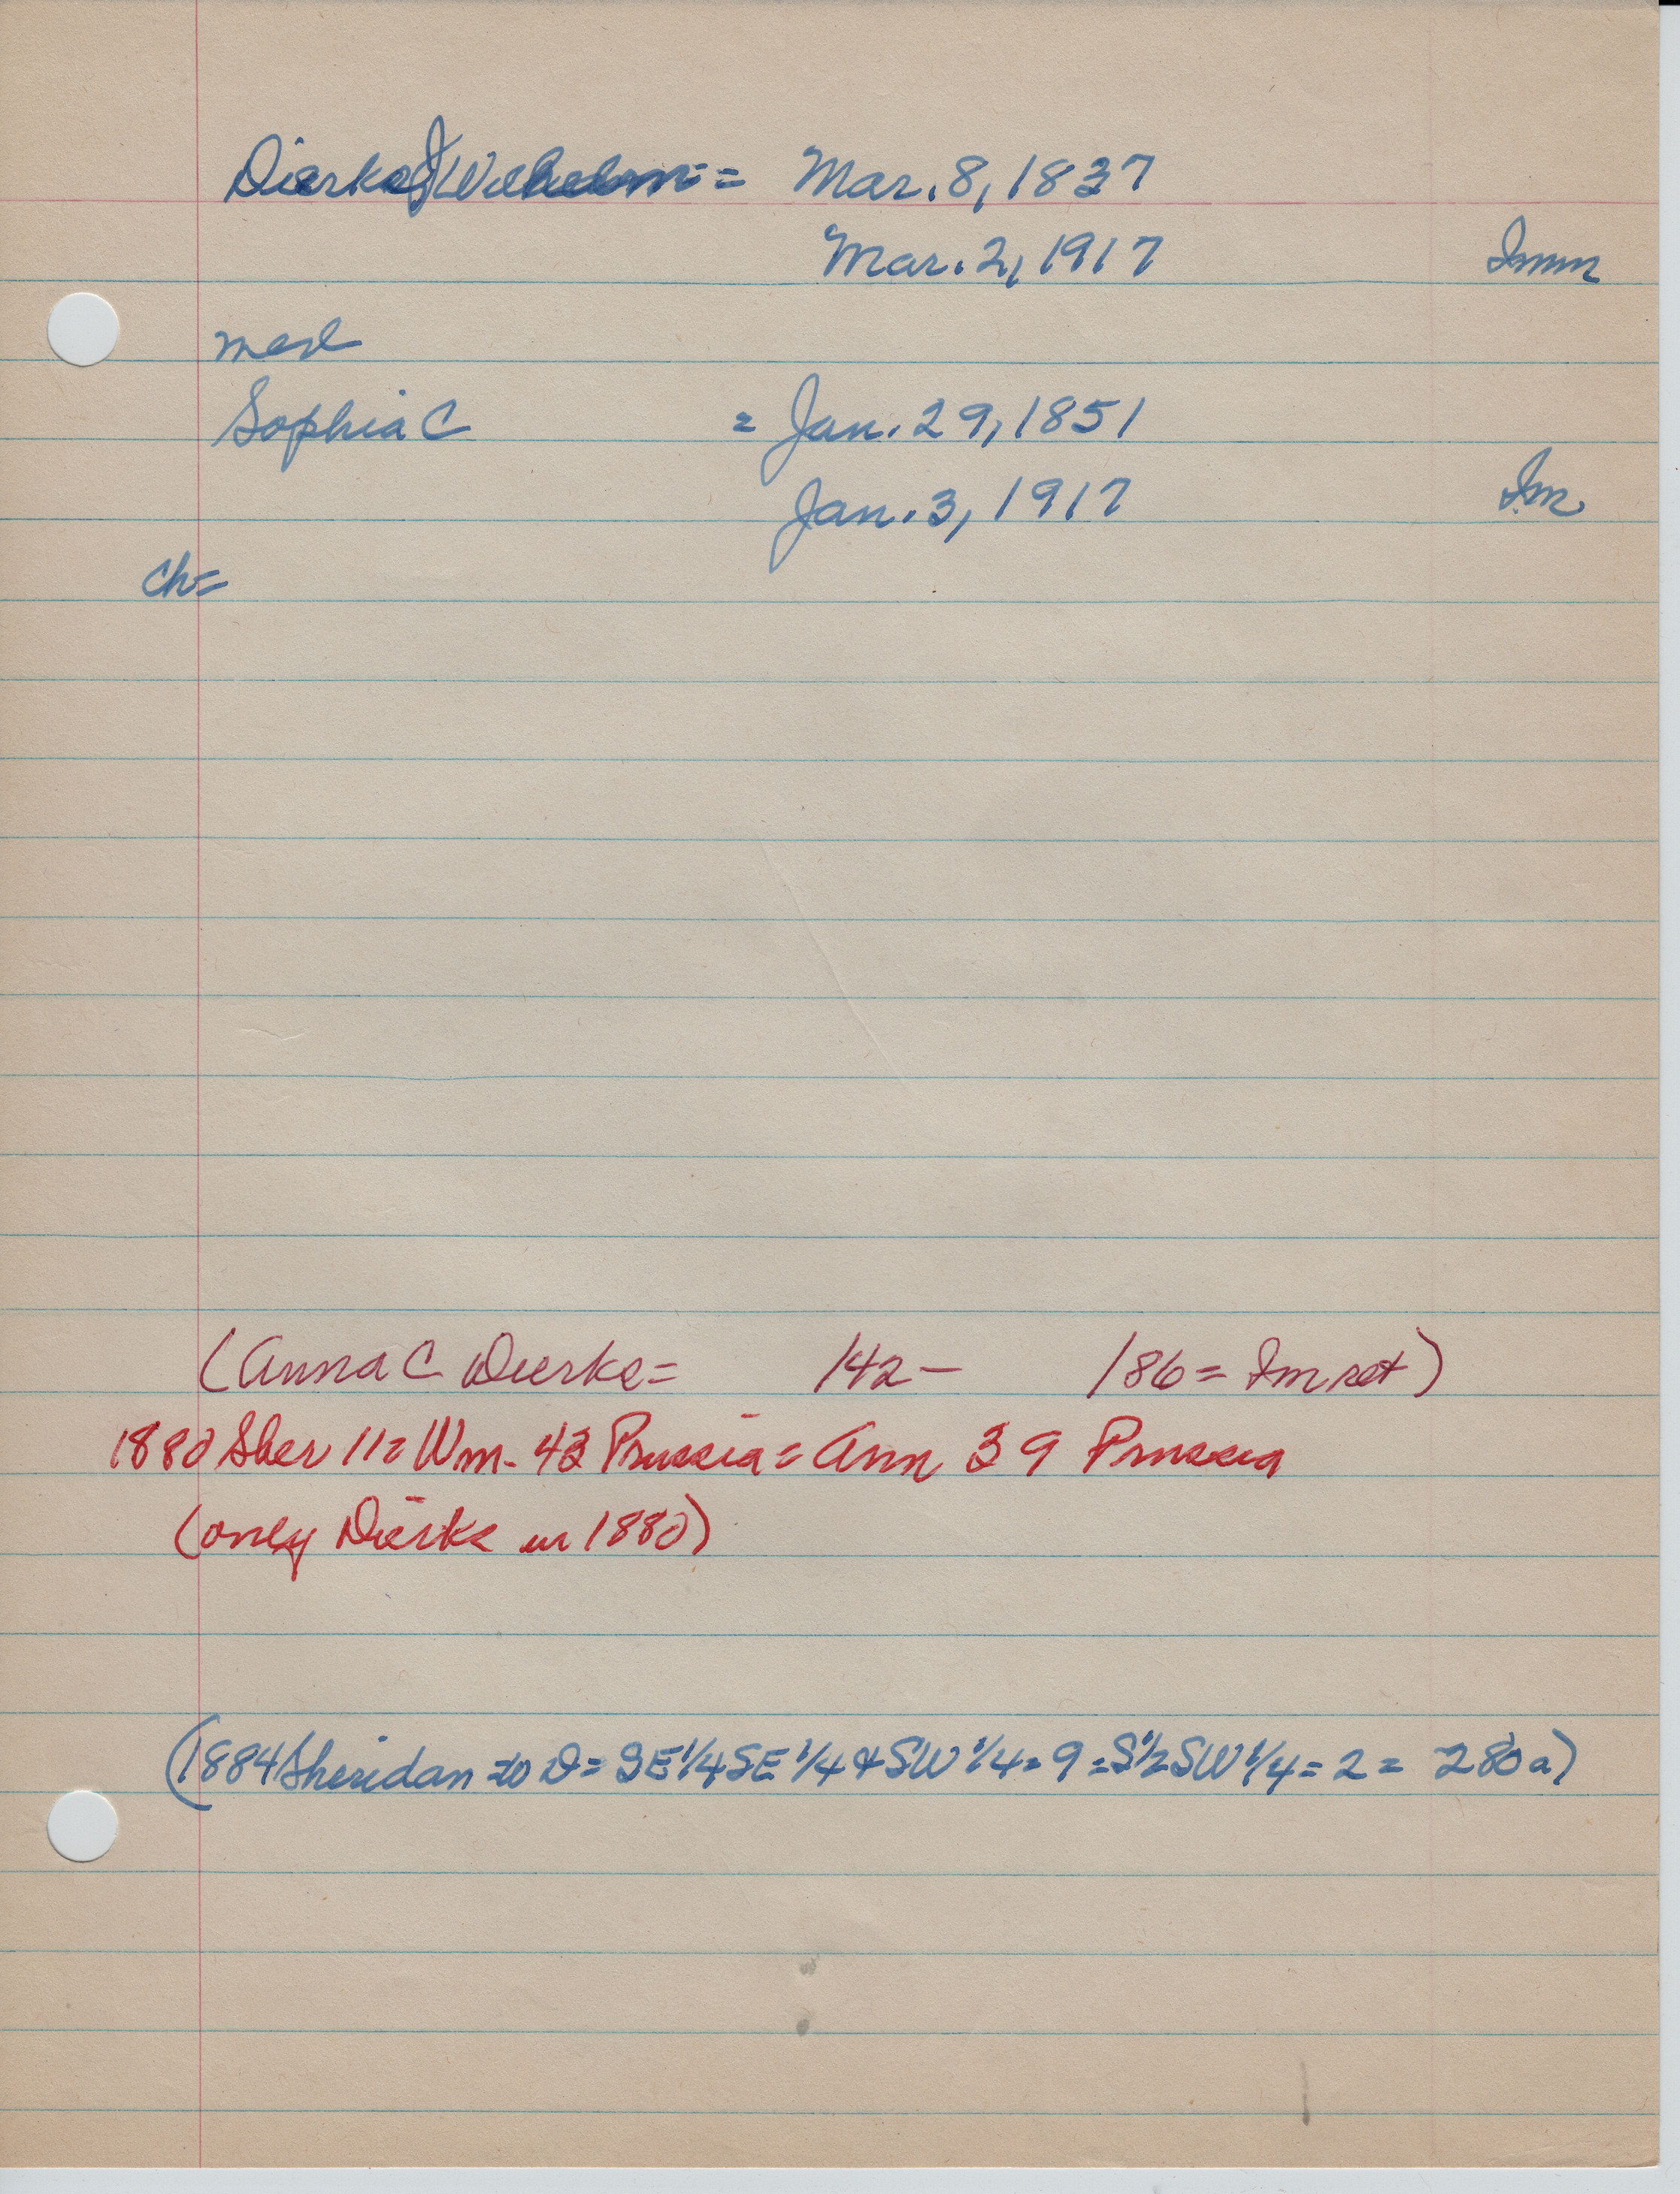 Dierke, J Wilhelm = Mar. 8, 1837
Mar. 2, 1917 Imm
med
Sophia C = Jan. 29, 1851
Jan. 3, 1917 Im
ch=
(Anna C Dierke= 142 – 186= Im)
1880 Sher 11= Wm. 43 Prussia= Ann 39 Prussia
(only Dierke in 1880)
(1884 Sheridan = D= SE 1/4 SE 1/4 & SW 1/4= 9 = S 1/2 SW 1/4 = 2 = 280 a)